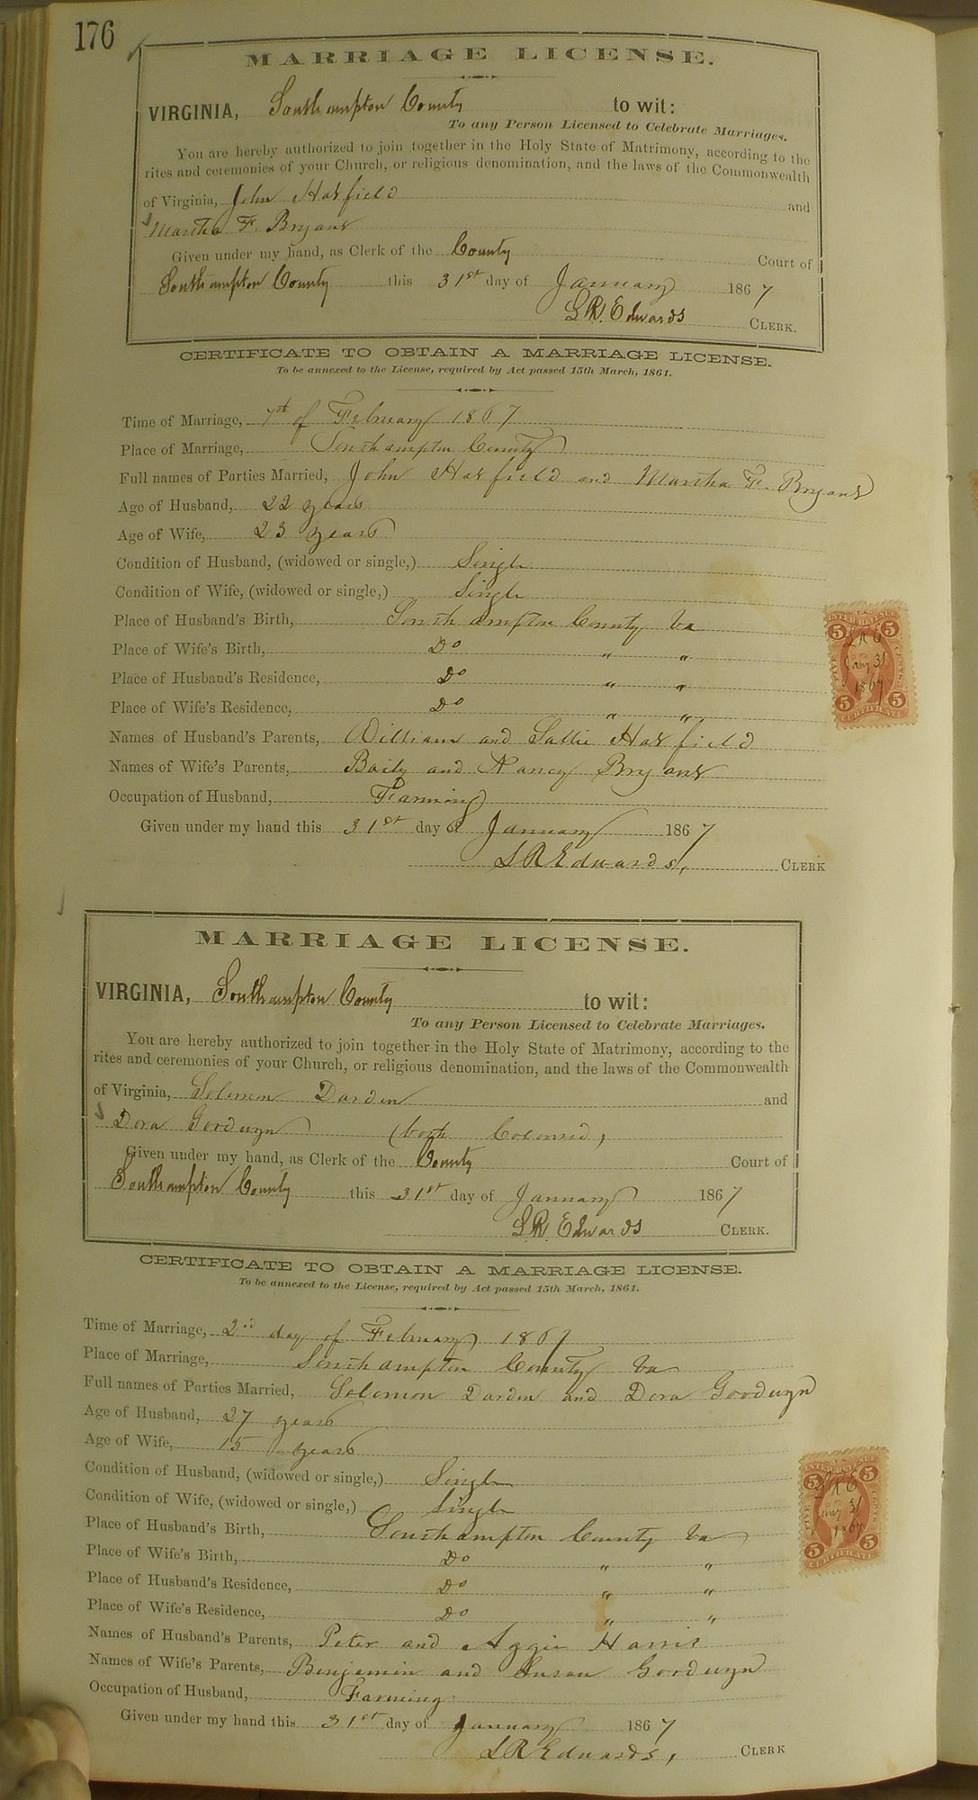 176
MARRIAGE LICENSE.
VIRGINIA, Southampton County to wit:
To any Person Licensed to Celebrate Marriages.
You are hereby authorized to join together in the Holy State of Matrimony, according to the
rites and ceremonies of your Church, or religious denomination, and the laws of the Commonwealth
of Virginia, John Hatfield and
Martha F. Bryant
Given under my hand, as Clerk of the County Court of
Southampton County this 31st day of January 1867
L.R. Edwards CLERK.
CERTIFICATE TO OBTAIN A MARRIAGE LICENSE.
To be annexed to the License, required by Act passed 15th March, 1861.
Time of Marriage, 7th of February 1867
Place of Marriage, Southampton County
Full names of Parties Married, John Hatfield and Martha F. Bryant
Age of Husband, 22 years
Age of Wife, 23 years
Condition of Husband, (widowed or single,) Single
Condition of Wife, (widowed or single,) Single
Place of Husband's Birth, Southampton County Va
Place of Wife's Birth, Do " "
Place of Husband's Residence, Do " "
Place of Wife's Residence, Do " "
Names of Husband's Parents, William and Sallie Hatfield
Names of Wife's Parents, Baily and Nancy Bryant
Occupation of Husband, Farming
Given under my hand this 31st day of January 1867
L R Edwards, CLERK
5 5
Jany 31
1867
5 5
CERTIFICATE
MARRIAGE LICENSE.
VIRGINIA, Southampton County to wit:
To any Person Licensed to Celebrate Marriages.
You are hereby authorized to join together in the Holy State of Matrimony, according to the
rites and ceremonies of your Church, or religious denomination, and the laws of the Commonwealth
of Virginia, Solomon Darden and
Dora Goodwyn (both Coloured)
Given under my hand, as Clerk of the County Court of
Southampton County this 31st day of January 1867
L.R. Edwards CLERK.
CERTIFICATE TO OBTAIN A MARRIAGE LICENSE.
To be annexed to the License, required by Act passed 15th March, 1861.
Time of Marriage, 2nd day of February 1867
Place of Marriage, Southampton County Va
Full names of Parties Married, Solomon Darden and Dora Goodwyn
Age of Husband, 27 years
Age of Wife, 15 years
Condition of Husband, (widowed or single,) Single
Condition of Wife, (widowed or single,) Single
Place of Husband's Birth, Southampton County Va
Place of Wife's Birth, Do " "
Place of Husband's Residence, Do " "
Place of Wife's Residence, Do " "
Names of Husband's Parents, Peter and Aggie Harris
Names of Wife's Parents, Benjamin and Susan Goodwyn
Occupation of Husband, Farming
Given under my hand this 31st day of January 1867
L R Edwards, CLERK
5 5
Jany 31
1867
5 5
CERTIFICATE